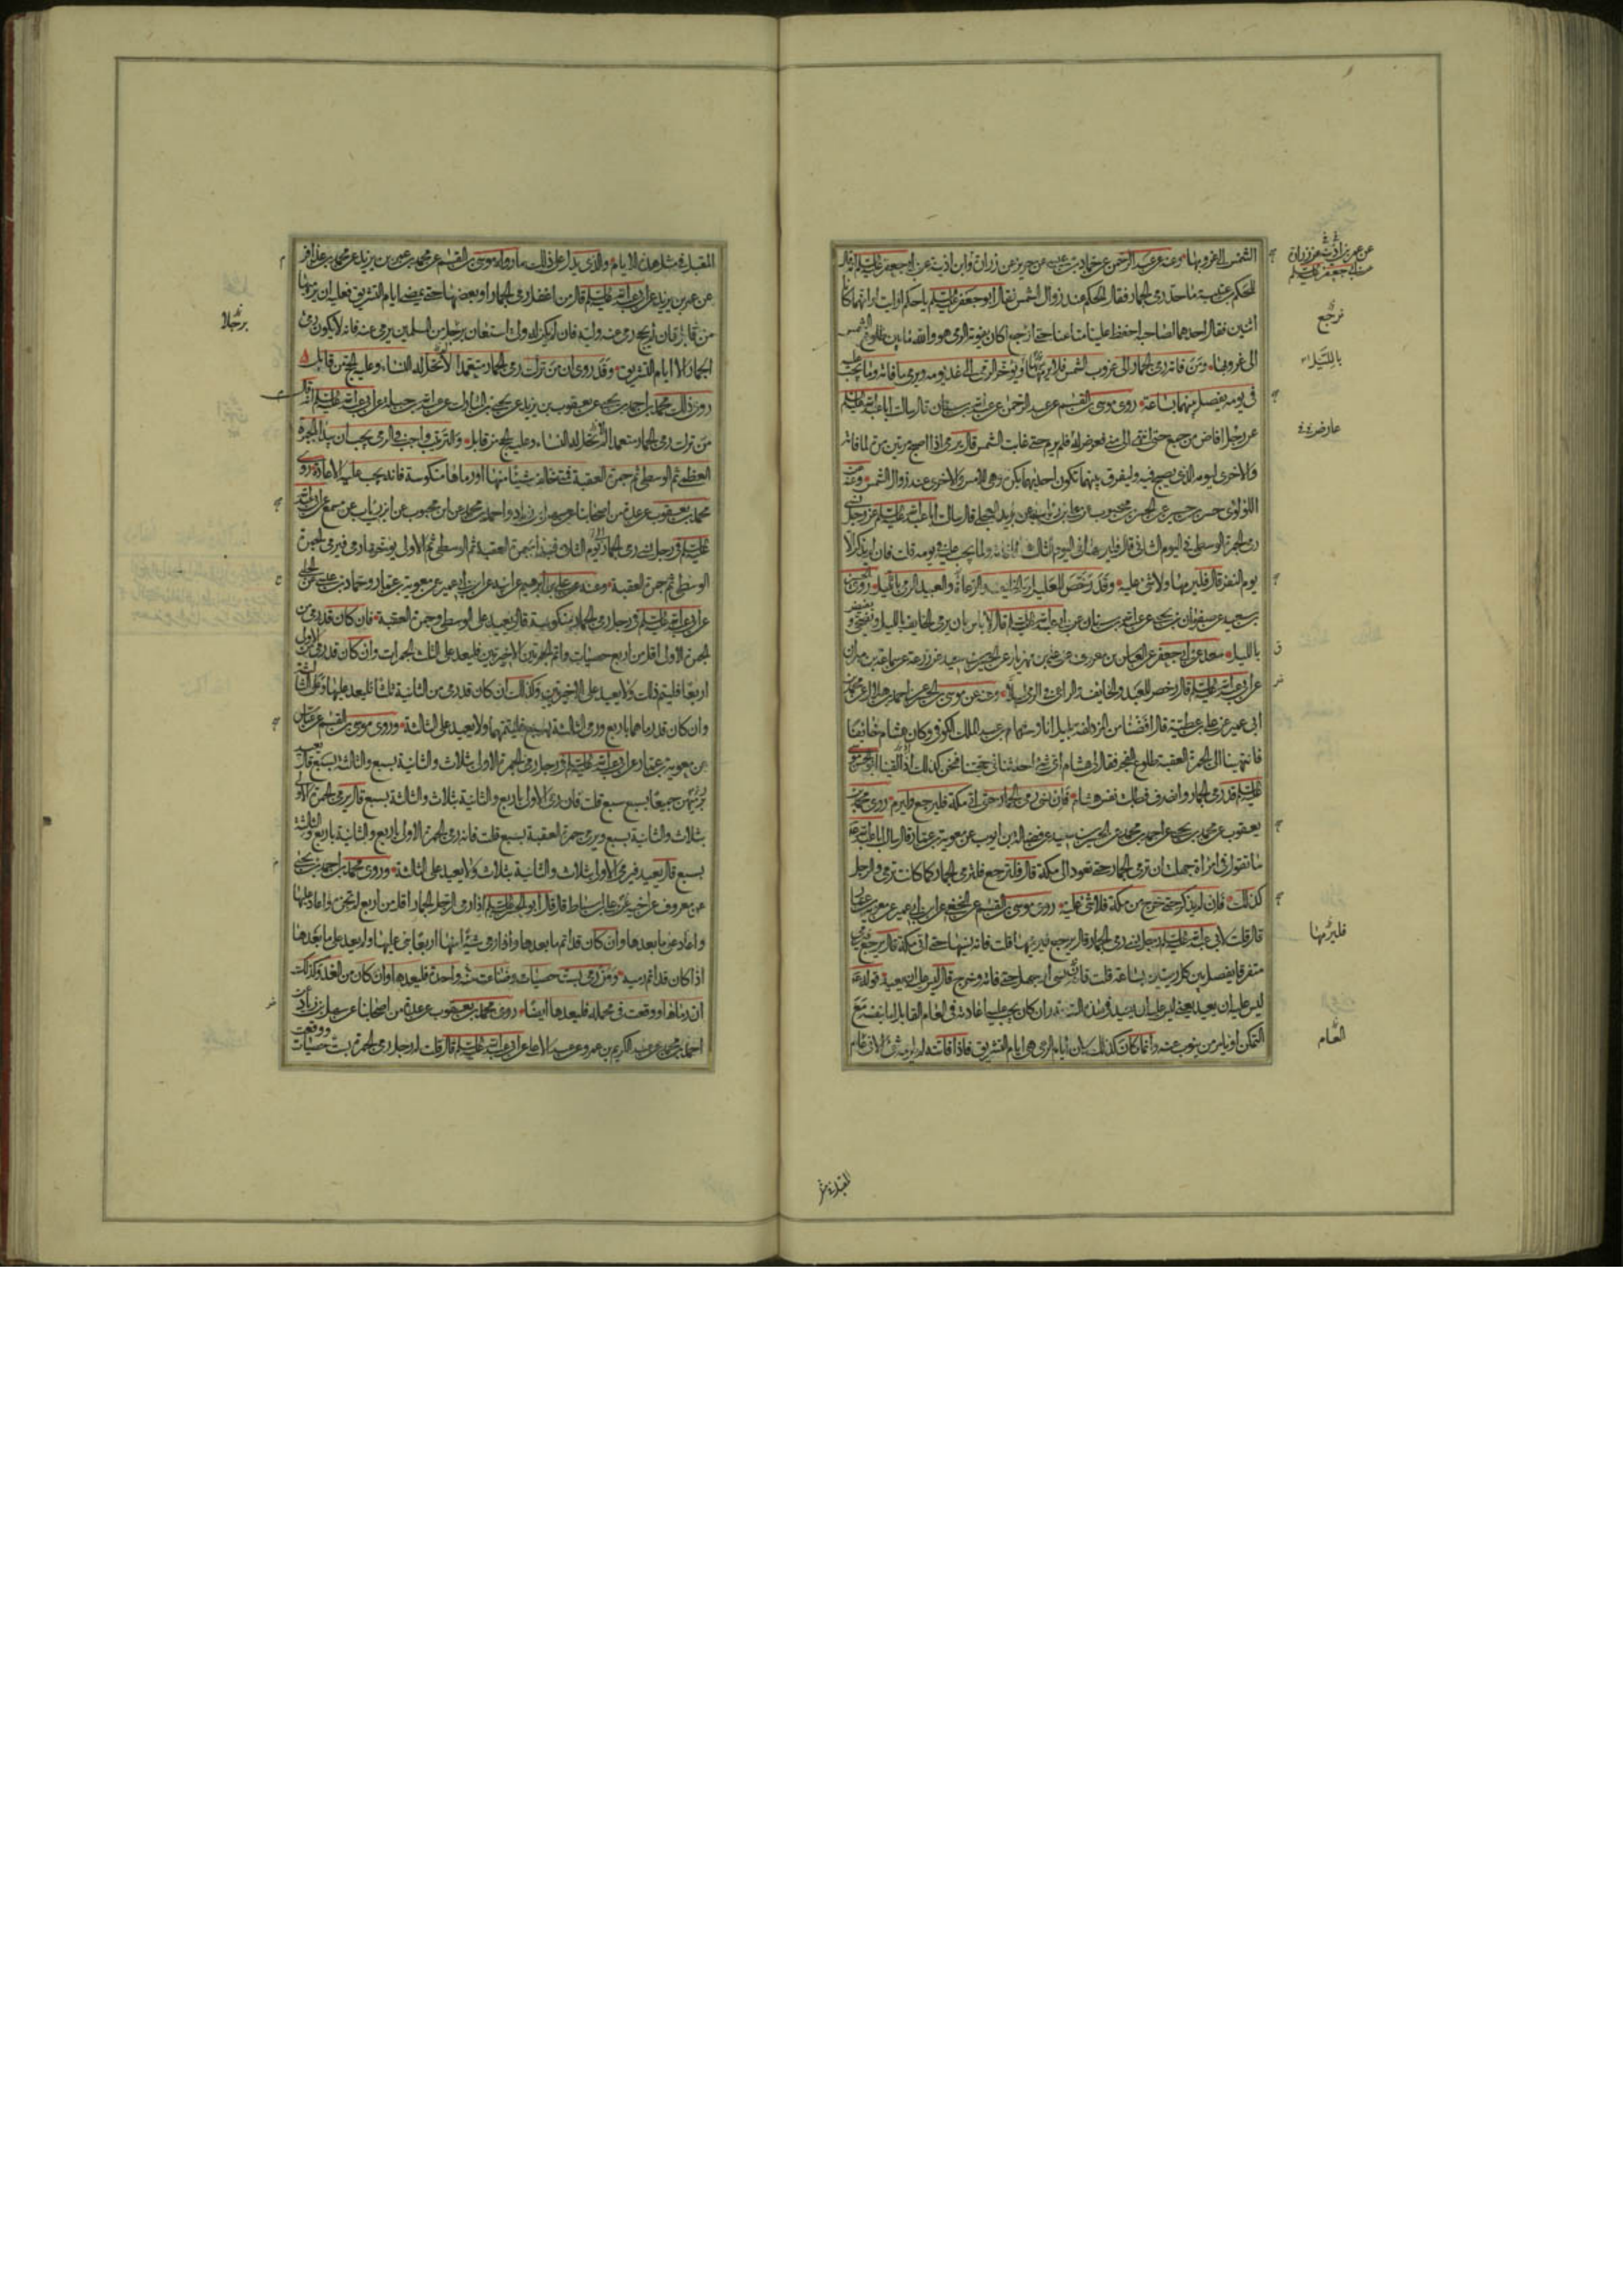 الشمس الى غروبها وعنه عن عبد الرحمن عن حماد بن عيسى عن حريز عن زرارة وابن اذينة عن ابي جعفر عليه السلم انه قال
للحكم بن عتيبة ما حد رمى الجمار فقال الحكم عند زوال الشمس فقال ابو جعفر عليه السلم يا حكم ارايت لو انهما كانا
اثنين فقال احدهما لصاحبه احفظ علينا متاعنا حتى ارجع اكان يفوته الرمى هو والله ما بين طلوع الشمس
الى غروبها ومن فاته رمى الجمار الى غروب الشمس فلا يرمها ويؤخر الرمى الى غد يومه ويرمى ما فاته وما يجب عليه
فى يومه يفصل بينهما بساعة روى موسى بن القسم عن عبد الرحمن عن عبد الله بن سنان قال سالت ابا عبد الله عليه السلم
عن رجل افاض من جمع حتى انتهى الى منى فعرض له فلم يرم حتى غابت الشمس قال يرمى اذا اصبح مرتين مرة لما فاته
والاخرى ليومه الذى يصبح فيه وليفرق بينهما تكون احديهما بكرة وهى للامس والاخرى عند زوال الشمس وعنه عن
اللؤلؤى حسن بن حسين عن الحسن بن محبوب عن على بن رئاب عن بريد العجلى قال سالت ابا عبد الله عليه السلم عن رجل نسى
رمى الجمرة الوسطى فى اليوم الثانى قال فليرمها فى اليوم الثالث لما فاته ولما يجب عليه فى يومه قلت فان لم يذكر الا
يوم النفر قال فليرمها ولا شئ عليه وقد رخص للعليل والخائف والرعاة والعبيد الرمى بالليل روى الحسين
بن سعيد عن صفوان بن يحيى عن عبد الله بن سنان عن ابي عبد الله عليه السلم قال لا باس بان يرمى الخايف بالليل ويضحى ويفيض
بالليل سعد عن ابي جعفر عن العباس بن معروف عن على بن مهزيار عن الحسين بن سعيد عن زرعة عن سماعة بن مهران
عن ابي عبد الله عليه السلم قال رخص للعبد والخايف والراعى فى الرمى ليلا وعنه عن موسى بن الحسن عن احمد بن هلال عن محمد بن
ابى عمير عن على بن عطية قال افضنا من المزدلفة بليل انا وهشام بن عبد الملك الكوفى وكان هشام خائفا
فانتهينا الى الجمرة العقبة طلوع الفجر فقال لى هشام اى شئ احدثنا فى حجتنا فنحن كذلك اذ لقينا ابو الحسن موسى
عليه السلم قد رمى الجمار وانصرف فطابت نفس هشام فان نسى رمى الجمار حتى اتى مكة فليرجع وليرم روى محمد بن
يعقوب عن محمد بن يحيى عن احمد بن محمد عن الحسين بن سعيد عن فضالة بن ايوب عن معوية بن عمار قال سالت ابا عبد الله
ما تقول فى امراة جهلت ان ترمى الجمار حتى تعود الى مكة قال فلترجع فلترمى الجمار كما كانت ترمى والرجل
كذلك فان لم يذكر حتى خرج من مكة فلا شئ عليه روى موسى بن القسم عن النخعى عن ابن ابي عمير عن معوية بن عمار
قال قلت لابى عبد الله عليه السلم رجل نسى رمى الجمار قال يرجع فيرميها قلت فانه نسيها حتى اتى مكة قال يرجع فيرمى
متفرقا يفصل بين كل رميتين بساعة قلت فانه نسى او جهل حتى فاته وخرج قال ليس عليه ان يعيد قوله
ليس عليه ان يعيد يعنى ليس عليه ان يعيد فى هذه السنة وان كان يجب عليه اعادته فى العام القابل اما بنفسه مع
التمكن او يامر من ينوب عنه وانما كان كذلك لان ايام الرمى هى ايام التشريق فاذا فاتته لم يلزمه شئ الا فى العام
عن عمر بن اذينة عن زرارة
عن ابى جعفر عليه السلم
نرجع
بالليل
عارض
فليرمها
العام
المقبلة فى مثل
المقبلة فى مثل هذه الايام والذى يدل على ذلك ما رواه موسى بن القسم عن محمد بن عمر بن يزيد عن محمد بن عذافر
عن عمر بن يزيد عن ابي عبد الله عليه السلم قال من اغفل رمى الجمار او بعضها حتى يمضى ايام التشريق فعليه ان يرميها
من قابل فان لم يحج رمى عنه وليه فان لم يكن له ولى استعان برجل من المسلمين يرمى عنه فانه لا يكون رمى
الجمار الا ايام التشريق وقد روى ان من ترك رمى الجمار متعمدا لا تحل له النساء وعليه الحج من قابل
روى ذلك محمد بن احمد بن يحيى عن يعقوب بن يزيد عن يحيى بن المبارك عن عبد الله بن جبلة عن ابي عبد الله عليه السلم انه قال
من ترك رمى الجمار متعمدا لم تحل له النساء وعليه الحج من قابل والترتيب واجب فى الرمى يجب ان يبدا بالجمرة
العظمى ثم الوسطى ثم جمرة العقبة فمتى خالف شيئا منها او رماها منكوسة فانه يجب عليه الاعادة روى
محمد بن يعقوب عن عدة من اصحابنا عن سهل بن زياد واحمد بن محمد عن ابن محبوب عن ابن رئاب عن مسمع عن ابي عبد الله
عليه السلم فى رجل نسى رمى الجمار يوم الثانى فبدا بجمرة العقبة ثم الوسطى ثم الاولى يؤخر ما رمى فيرمى الجمرة
الوسطى ثم جمرة العقبة وعنه عن على بن ابرهيم عن ابيه عن ابن ابي عمير عن معوية بن عمار وحماد بن عيسى عن الحلبى
عن ابي عبد الله عليه السلم فى رجل رمى الجمار منكوسة قال يعيد على الوسطى وجمرة العقبة فان كان قد رمى من
الجمرة الاولى اقل من اربع حصيات واتم الجمرتين الاخيرتين فليعد على الثلث الجمرات وان كان قد رمى من الاولى
اربعا فليتم ذلك ولا يعيد على الاخيرتين وكذلك ان كان قد رمى من الثانية ثلثا فليعد عليها وعلى الثالثة
وان كان قد رماها باربع ورمى الثالثة بسبع فليتمها ولا يعيد على الثالثة وروى موسى بن القسم عن عباس
عن معوية بن عمار عن ابي عبد الله عليه السلم فى رجل رمى الجمرة الاولى بثلاث والثانية بسبع والثالثة بسبع قال يعيد
يرميهن جميعا بسبع سبع قلت فان رمى الاولى باربع والثانية بثلاث والثالثة بسبع قال يرمى الجمرة الاولى
بثلاث والثانية بسبع ويرمى جمرة العقبة بسبع قلت فانه رمى الجمرة الاولى باربع والثانية باربع والثالثة
بسبع قال يعيد فيرمى الاولى بثلاث والثانية بثلاث ولا يعيد على الثالثة وروى محمد بن احمد بن يحيى
عن معروف عن اخيه عن على بن اسباط قال قال ابو الحسن عليه السلم اذا رمى الرجل الجمار اقل من اربع لم تجزه واعاد عليها
واعاد على ما بعدها وان كان قد اتم ما بعدها واذا رمى شيئا منها اربعا بنى عليها ولم يعد على ما بعدها
اذا كان قد اتم رميه ومن رمى بست حصيات وضاعت منه واحدة فليعدها وان كان من الغد وكذلك
ان رماها ووقعت فى محمل فليعدها ايضا روى محمد بن يعقوب عن عدة من اصحابنا عن سهل بن زياد عن
احمد بن محمد عن عبد الكريم بن عمرو عن عبد الاعلى عن ابي عبد الله عليه السلم قال قلت له رجل رمى الجمرة بست حصيات ووقعت
برجلا